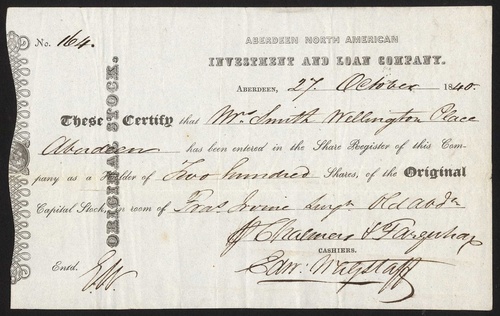 No. 164.
ABERDEEN NORTH AMERICAN
INVESTMENT AND LOAN COMPANY.
ABERDEEN, 27 October 1840.
These Certify that Mrs Smith Wellington Place
Aberdeen has been entered in the Share Register of this Com-
pany as a Holder of Two hundred Shares, of the Original
Capital Stock, in room of Fras. Irvine Old Abdn
Chalmers & Farquhar
CASHIERS.
Entd. E.W. Edw. Wagstaff
ORIGINAL STOCK.